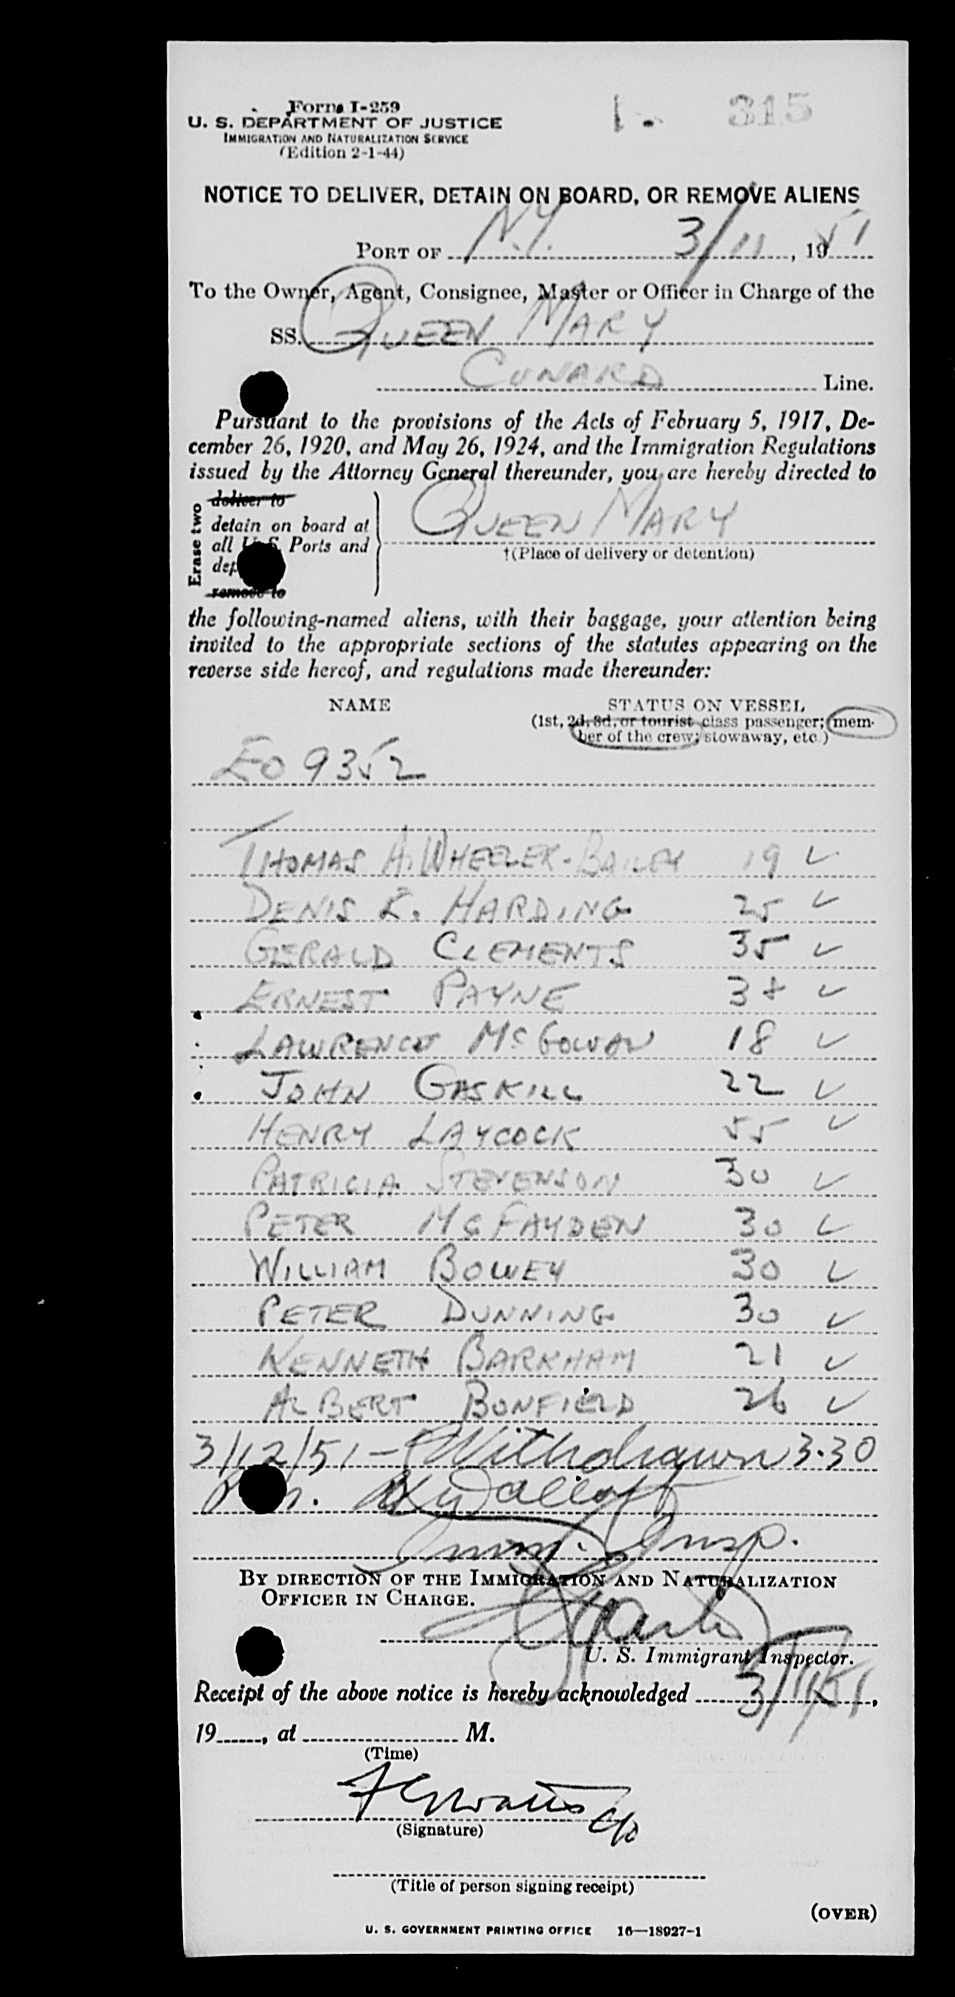 Form I-259
1- 315
U. S. DEPARTMENT OF JUSTICE
IMMIGRATION AND NATURALIZATION SERVICE
(Edition 2-1-44)
NOTICE TO DELIVER, DETAIN ON BOARD, OR REMOVE ALIENS
PORT OF N.Y. 3/11, 1951
To the Owner, Agent, Consignee, Master or Officer in Charge of the
SS. QUEEN MARY
CUNARD Line.
Pursuant to the provisions of the Acts of February 5, 1917, De-
cember 26, 1920, and May 26, 1924, and the Immigration Regulations
issued by the Attorney General thereunder, you are hereby directed to
Erase two
deliver to
detain on board at
all U.S. Ports and
dep
remove to
QUEEN MARY
†(Place of delivery or detention)
the following-named aliens, with their baggage, your attention being
invited to the appropriate sections of the statutes appearing on the
reverse side hereof, and regulations made thereunder:
NAME STATUS ON VESSEL
(1st, 2d, 3d, or tourist class passenger; mem-
ber of the crew; stowaway, etc.)
EO 9352
THOMAS A. WHEELER-BAILEY 19 ✓
DENIS R. HARDING 25 ✓
GERALD CLEMENTS 35 ✓
ERNEST PAYNE 38 ✓
LAWRENCE McGOWAN 18 ✓
JOHN GASKILL 22 ✓
HENRY LAYCOCK 55 ✓
PATRICIA STEVENSON 30 ✓
PETER McFAYDEN 30 ✓
WILLIAM BOWEY 30 ✓
PETER DUNNING 30 ✓
KENNETH BARKHAM 21 ✓
ALBERT BONFIELD 26 ✓
3/12/51 - Withdrawn 3.30
Imm. Insp.
BY DIRECTION OF THE IMMIGRATION AND NATURALIZATION
OFFICER IN CHARGE.
U. S. Immigrant Inspector.
Receipt of the above notice is hereby acknowledged 3/11/51,
19, at M.
(Time)
(Signature)
(Title of person signing receipt)
(OVER)
U. S. GOVERNMENT PRINTING OFFICE 16—18927-1